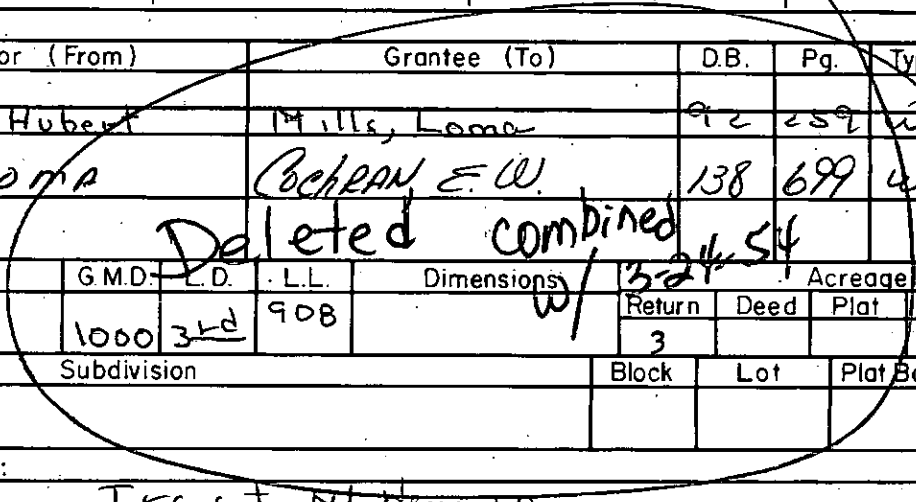 or (From) Grantee (To) D.B. Pg. Ty
Hubert Mills, Loma 92 259 w
oma Cochran E.W. 138 699 w
Deleted combined
w/ 3-24-54
G.M.D. L.D. L.L. Dimensions Acreage
Return Deed Plat
1000 3rd 908 3
Subdivision Block Lot Plat Bo